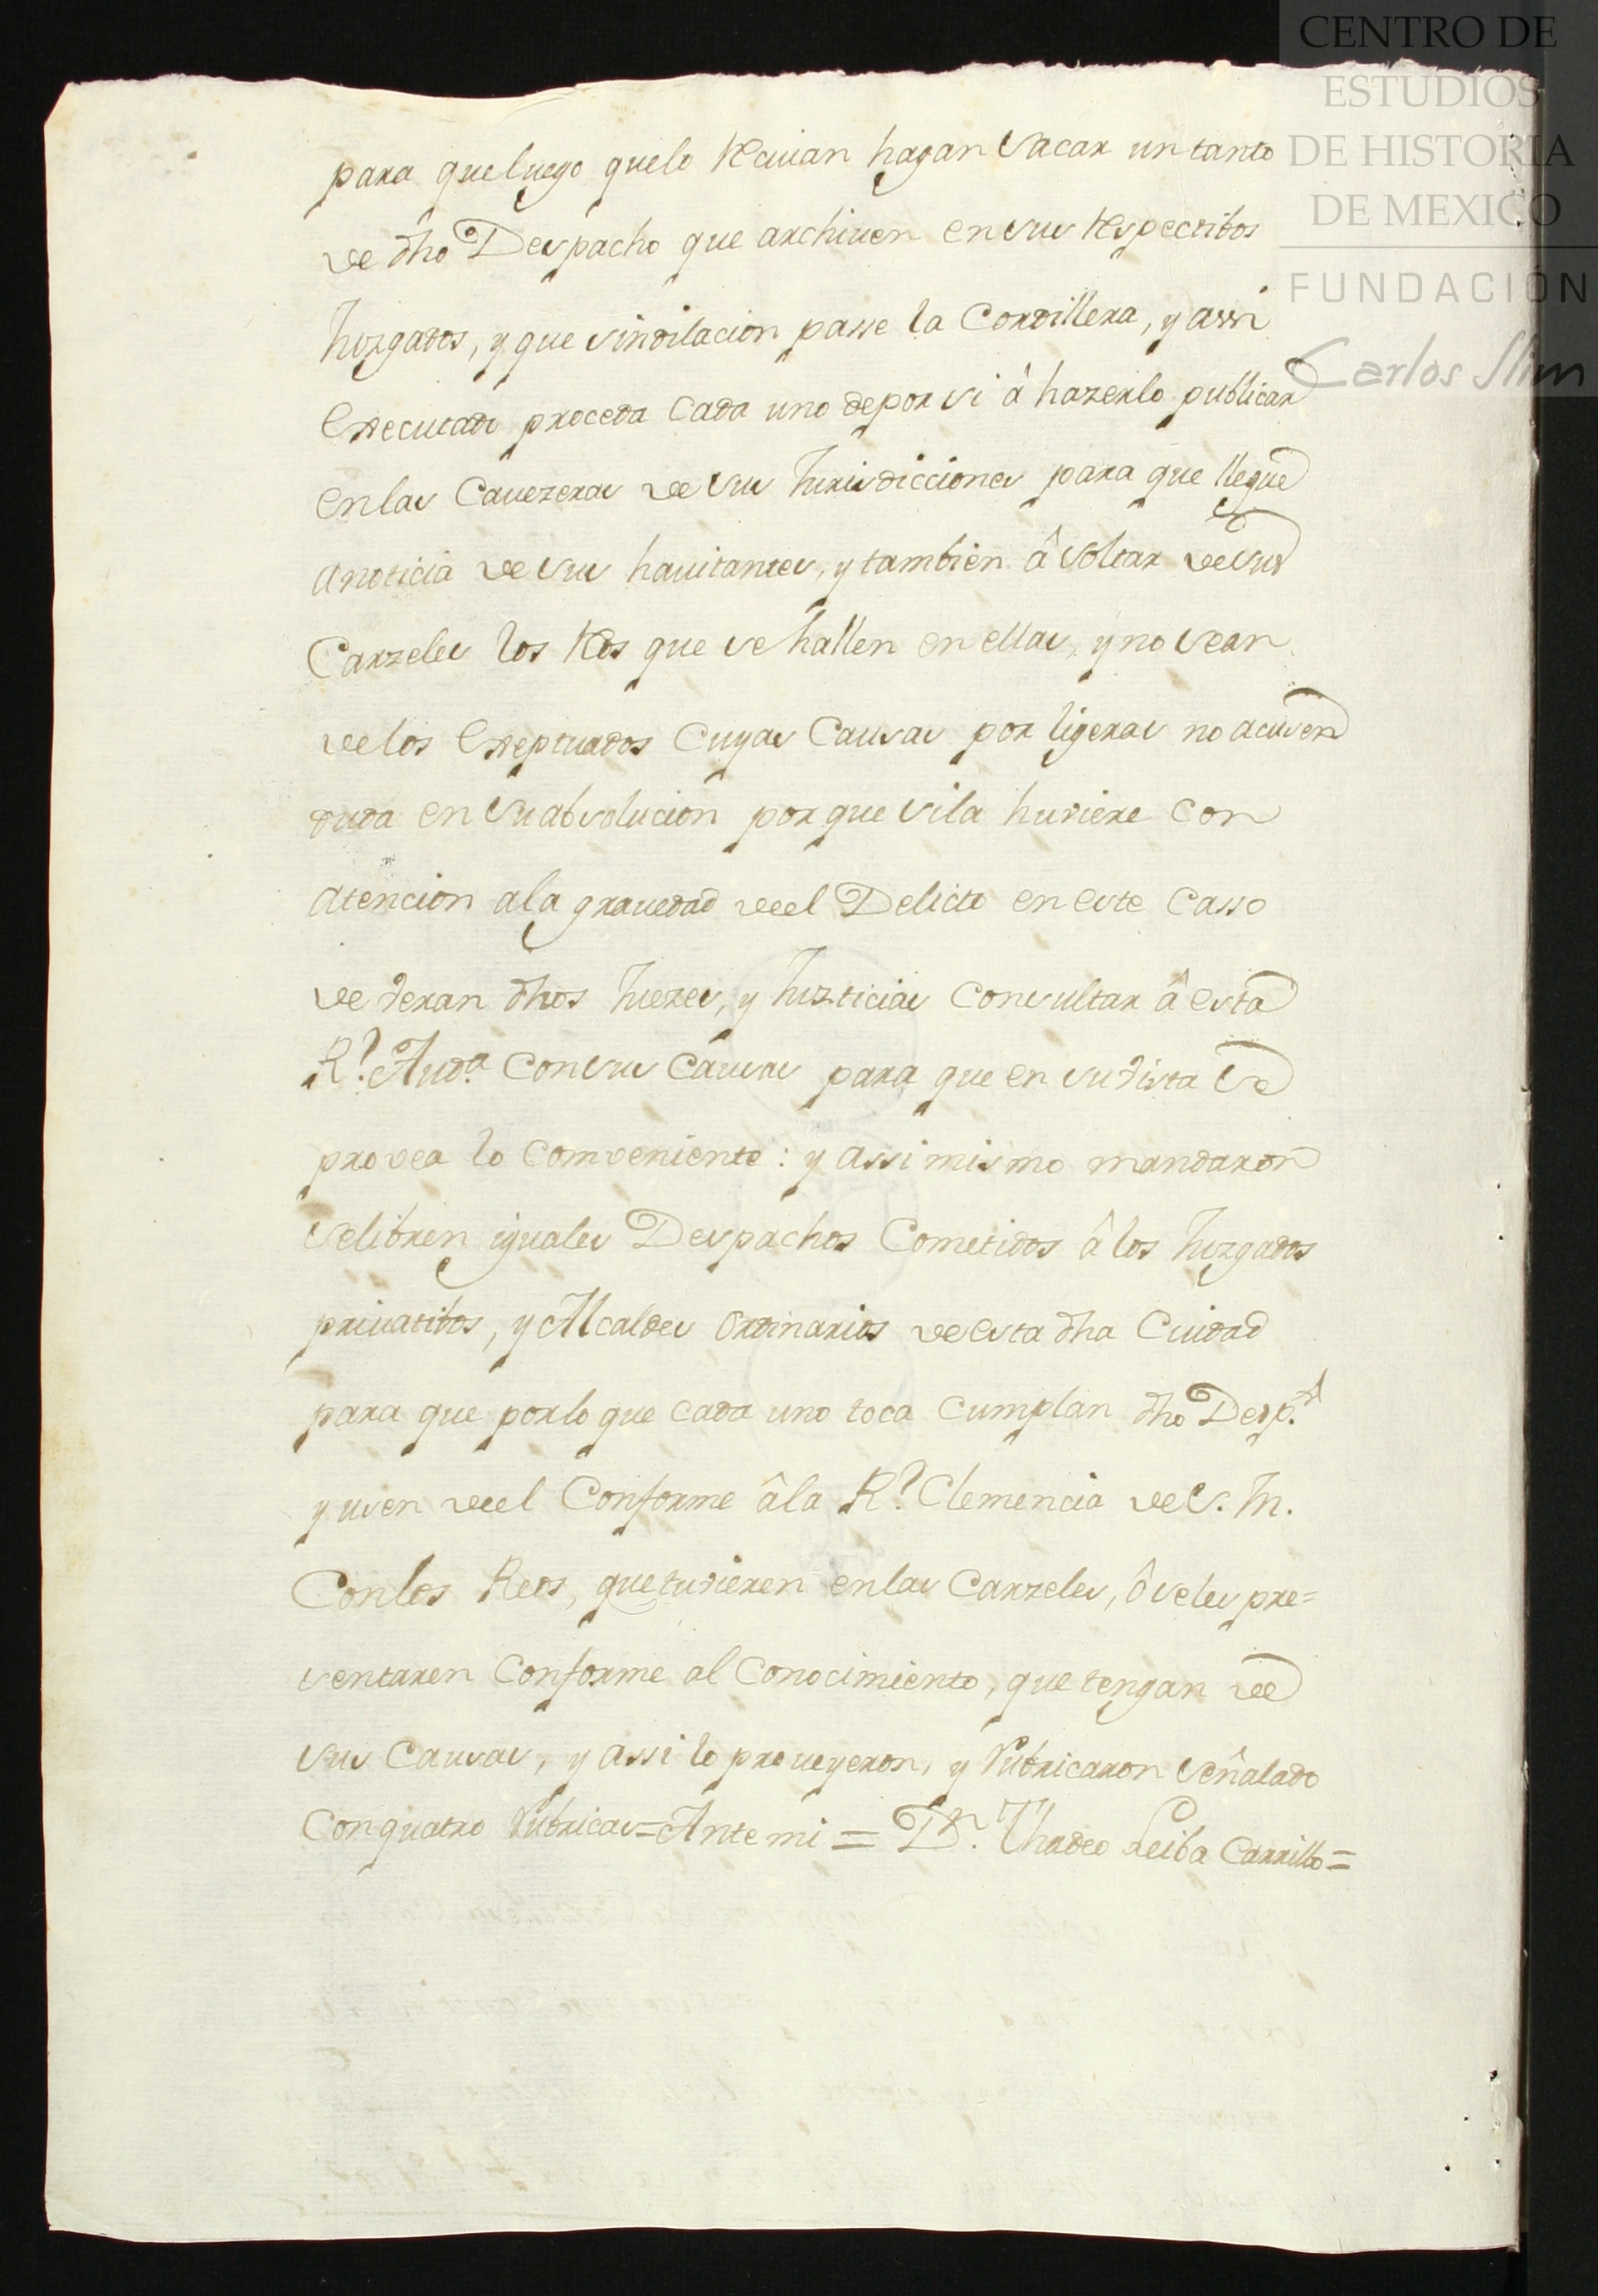 CENTRO DE
ESTUDIOS
DE HISTORIA
DE MEXICO
FUNDACIÓN
Carlos Slim
para que luego quelo Reciuan hagan sacar un tanto
de dho Despacho que archiuen en sus Respectibos
Juzgados, y que sin dilacion passe la Cordillera, y assi
Executado proceda Cada uno depor si â hazerlo publicar
en las Cauezeras de sus Jurisdicciones para que llegue
a noticia de sus hauitantes, y tambien â soltar de sus
Carzeles los Reos que se hallen en ellas, y no sean
delos Exeptuados Cuyas Causas por ligeras no acusen
duda en su absolucion por que sila huviere con
atencion ala grauedad deel Delicto en este Casso
deveran dhos Juezes, y Justicias Consultar â esta
Rl. Auda. Con sus Causas para que en su vista se
provea lo Comveniente: y assi mismo mandaron
se libren iguales Despachos Cometidos â los Juzgados
priuatibos, y Alcaldes Ordinarios de esta dha Ciudad
para que porlo que Cada uno toca Cumplan dho Desp.o
y usen deel Conforme âla Rl. Clemencia de S. M.
Con los Reos, que tuvieren en las Carzeles, ô se les pre=
sentaren Conforme al Conocimiento, que tengan de
sus Causas, y assi lo proueyeron, y Rubricaron señalado
Con quatro Rubricas = Ante mi = Dn. Thadeo Leiba Carrillo =